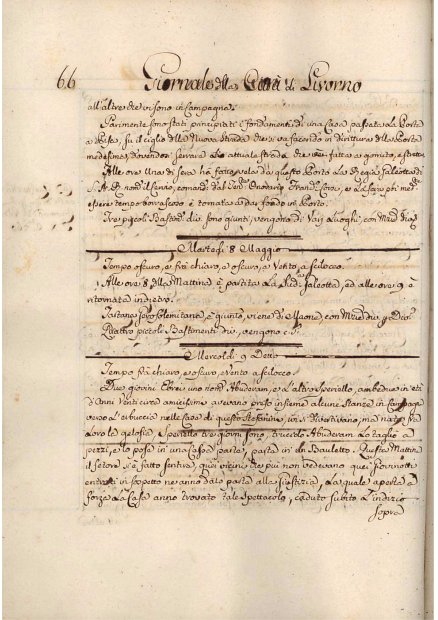 66 Giornale della Città di Livorno
all'altre che vi sono in Campagna.
Parimente sono stati principiati i fondamenti di una Casa passata la Porta
a Pisa, su il ciglio della Nuova Strada che si va facendo in dirittura della Porta
medesima, dovendosi serrare l'attuale strada che fatta a gomito, e stretta
Alle ore Una di sera ha fatto vela da questo Porto la Regia Galeotta di
S. A. R. nond.
essere tempo burascoso è tornata a dar fondo in Porto.
Tre piccoli Bastim. div. sono giunti, vengono di Varj Luoghi, con Merci
Martedi 8 Maggio
Tempo oscuro, e poi chiaro, e oscuro, e Vento a scilocco.
Alle ore 8 della Mattina è partita la Sud. Galeotta, ed alle ore 9 è
ritornata indietro.
Tartana Gerosolemitana, è giunta, viene di Maone, con Mercie div. g. Div.
Quattro piccoli Bastimenti div. vengono
Mercoldi 9 Detto
Tempo poi chiaro, e oscuro, e Vento a scilocco.
Due giovani Ebrei uno nom. Abuderan, e l'altro Speriello, ambedue in età
di Anni Venti circa amicissimi avevano preso insieme alcune Stanze in Campagna
verso l'erbuccia nelle Case di questo Stefanini, ivi si divertivano, ma nata fra
Loro la gelosia, Speriello tre giorni sono, trucidò Abuderan lo tagliò a
pezzi, e lo pose in una Cassa parte, parte in un Bauletto. Questa Mattina
il fetore s'è fatto sentire, quei vicini che più non vedevano quei Giovinotti
entrati in sospetto ne anno dato parte alla Giustizia, la quale aperta a
forza la Casa anno trovato tale Spettacolo, caduto subito l'indizio
sopra